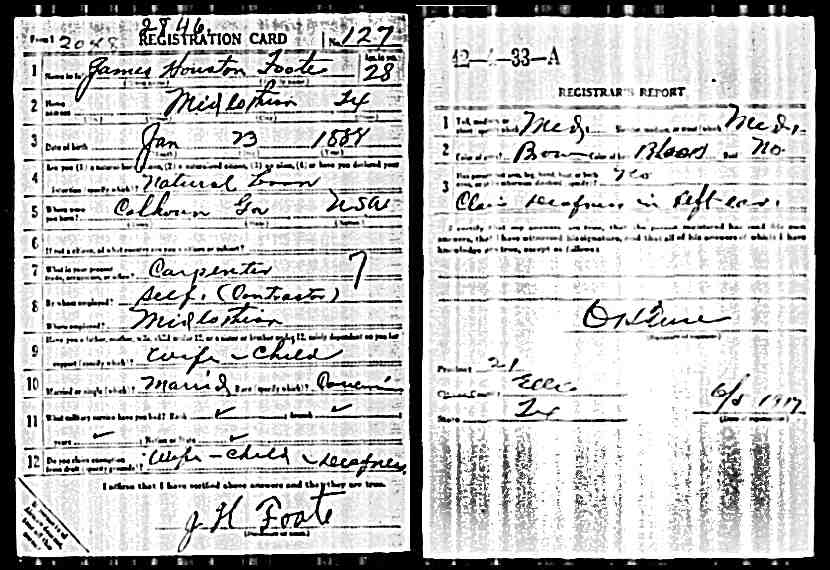 2846.
Form 1 2048 REGISTRATION CARD No. 127
1 Name in full James Houston Foote Age, in yrs. 28
2 Home address Midlothian Tex
3 Date of birth Jan 23 1888
4 Are you (1) a natural born citizen, (2) a naturalized citizen, (3) an alien, (4) or have you declared your
intention (specify which)? Natural born
5 Where were you born? Calhoun Ga USA
6 If not a citizen, of what country are you a citizen or subject?
7 What is your present trade, occupation, or office? Carpenter 7
8 By whom employed? Self. (Contractor)
Where employed? Midlothian
9 Have you a father, mother, wife, child under 12, or a sister or brother under 12, solely dependent on you for
support (specify which)? Wife - Child
10 Married or single (which)? Married Race (specify which)?
11 What military service have you had? Rank ✓ branch ✓
years ✓ Nation or State ✓
12 Do you claim exemption from draft (specify grounds)? Wife - Child - Deafness
I affirm that I have verified above answers and that they are true.
J H Foote
42-4-33-A
REGISTRAR'S REPORT
1 Tall, medium, or short (specify which)? Med. Slender, medium, or stout (which)? Med.
2 Color of eyes? Color of hair? Bald? No
3 Has person lost arm, leg, hand, foot, or both eyes, or is he otherwise disabled (specify)? No
Claims Deafness in left ear.
I certify that my answers are true, that the person registered has read his own
answers, that I have witnessed his signature, and that all of his answers of which I have
knowledge are true, except as follows:
(Signature of registrar)
Precinct 21
City or County Ellis
State Tex 6/5 1917
(Date of registration)